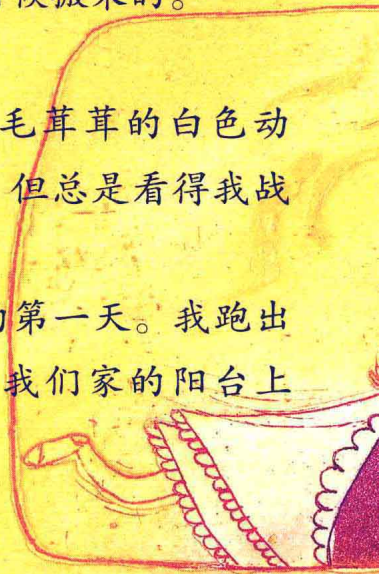 毛茸茸的白色动
但总是看得我战
第一天。我跑出
我们家的阳台上